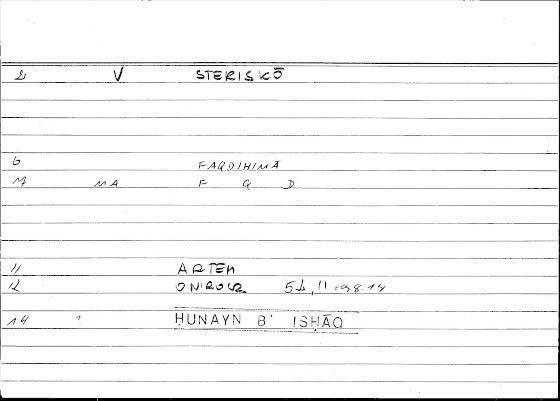 2 V STERISKŌ
6 FAQDIHIMĀ
7 MA F Q D
11 ARTEM
12 ONIROCR 5b,11 : 98.14
14 ḤUNAYN B' ISḤĀQ